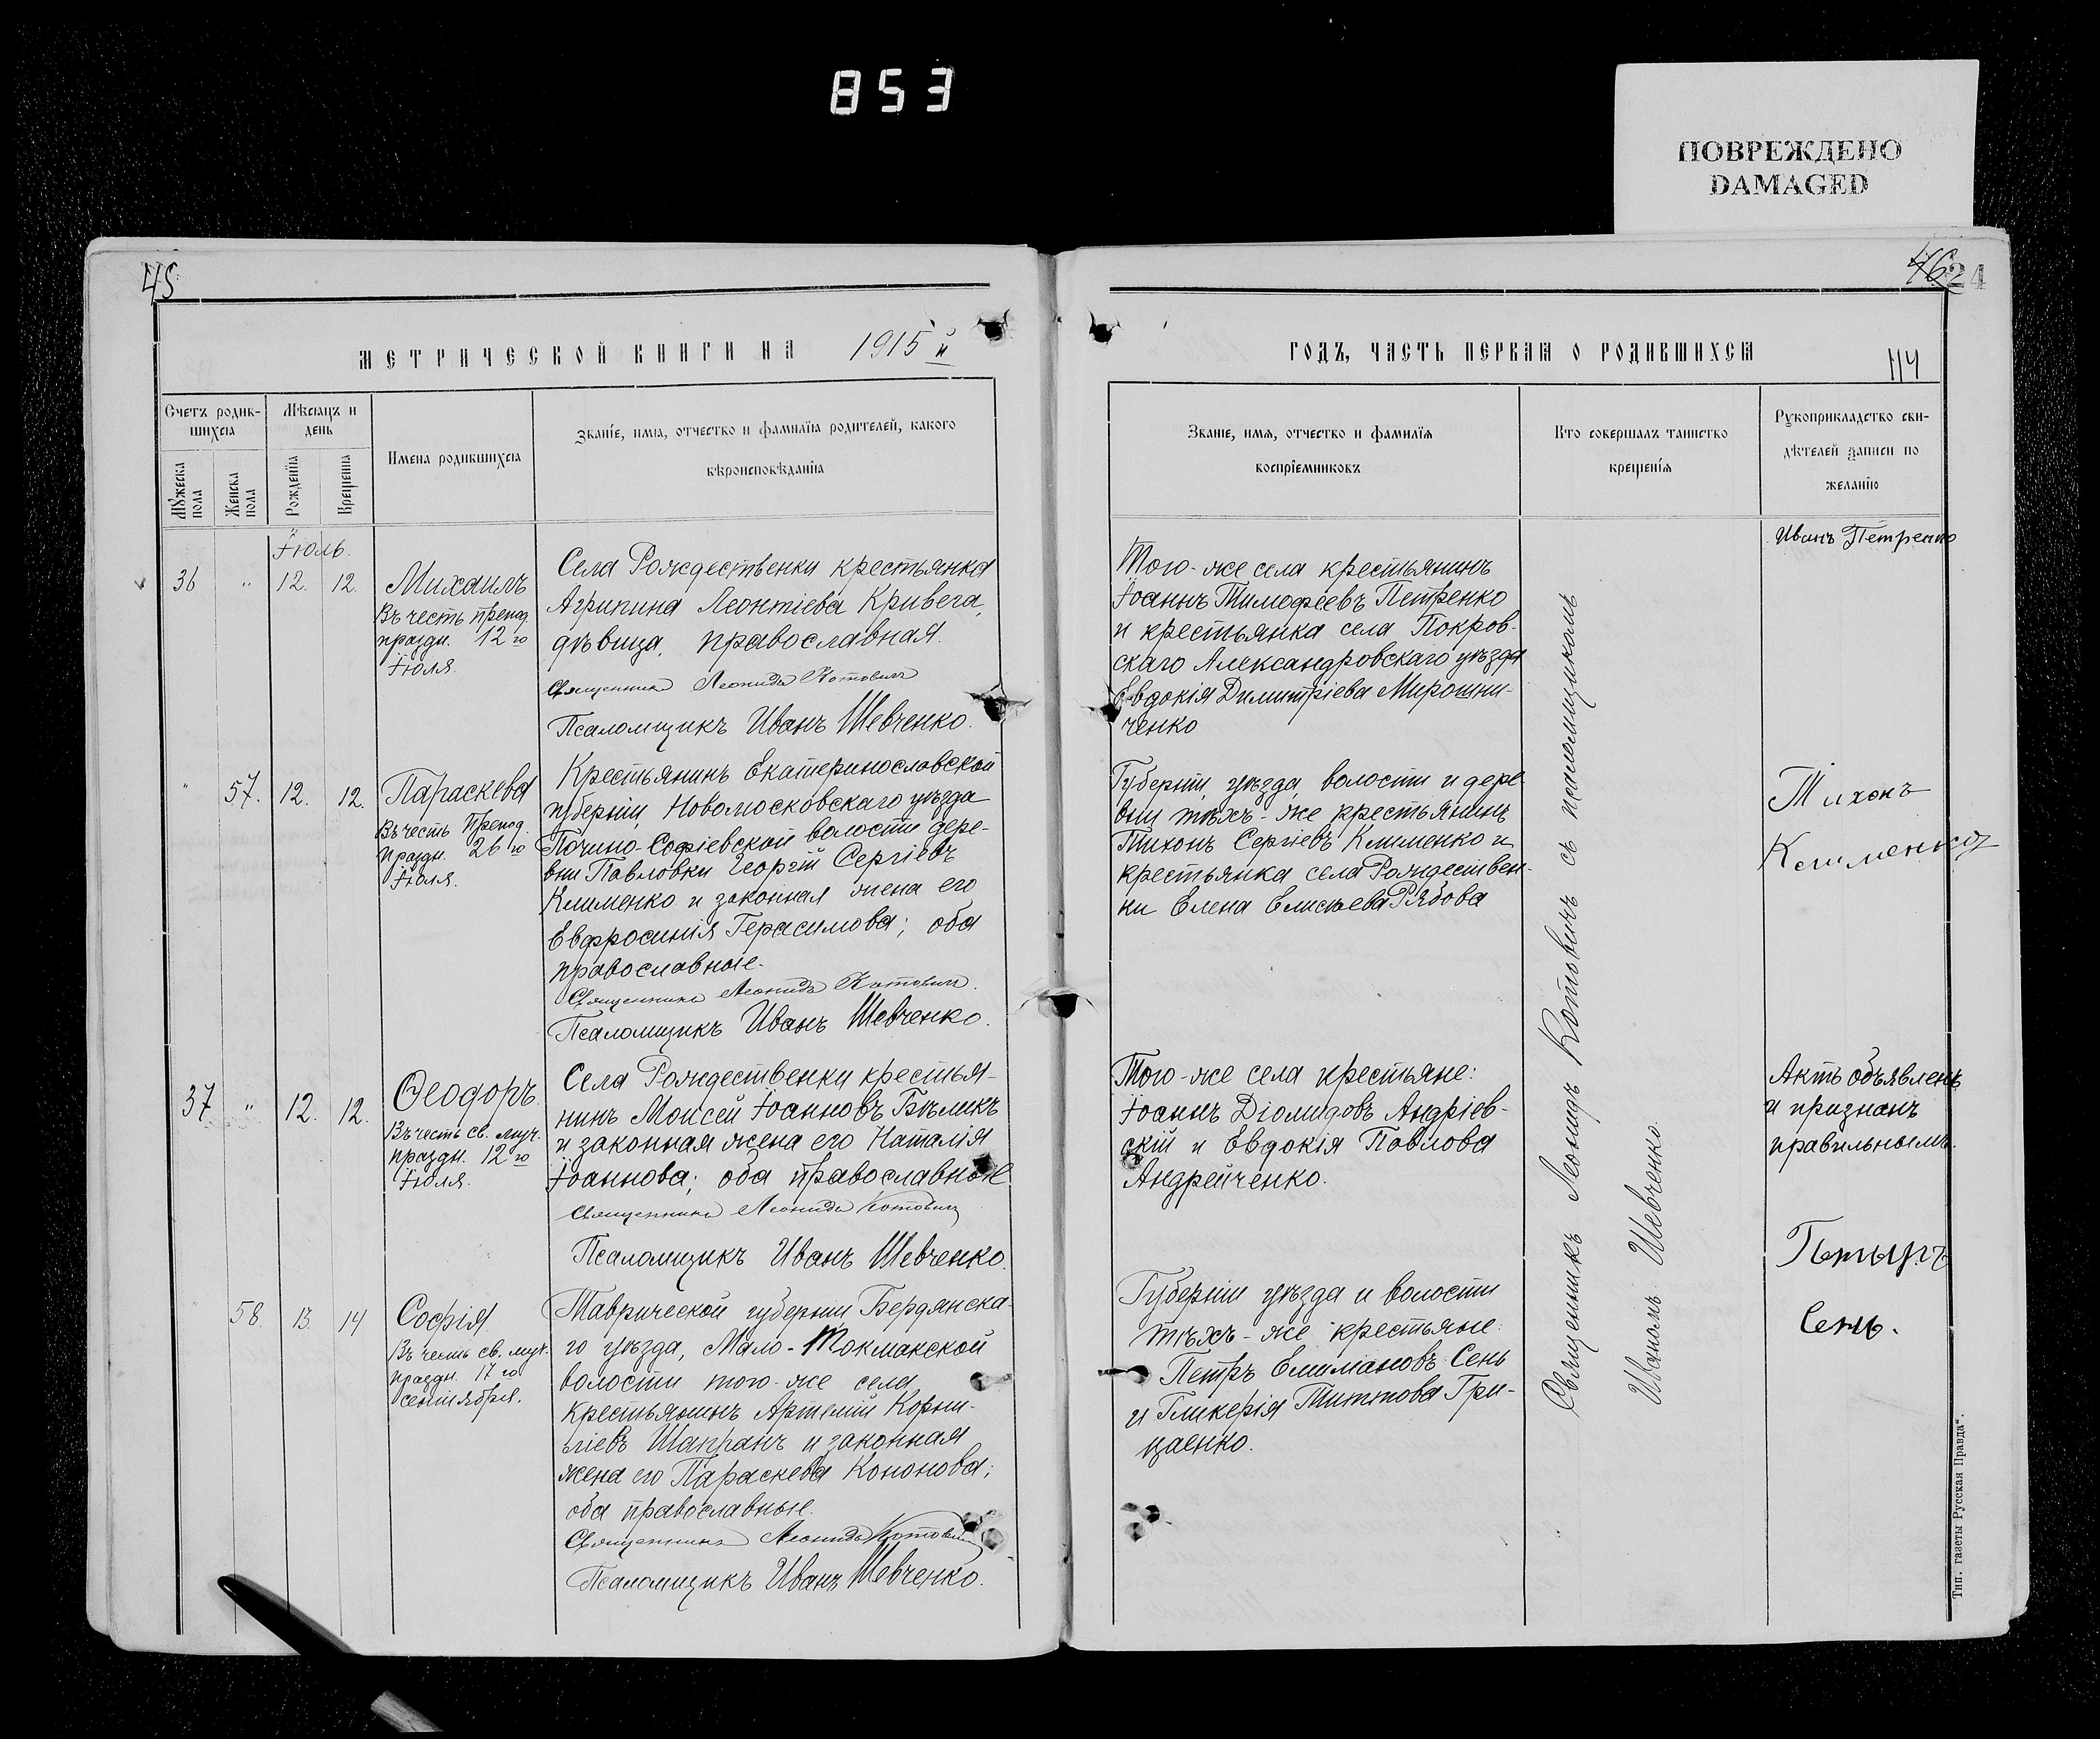 853
ПОВРЕЖДЕНО
DAMAGED
45
МЕТРИЧЕСКОЙ КНИГИ НА 1915 й
Счетъ родив-
шихся
Мѣсяцъ и
день
Имена родившихся
Званіе, имя, отчество и фамилія родителей, какого
вѣроисповѣданія
Мужеска
пола
Женска
пола
Рожденія
Крещенія
Іюль.
36 " 12. 12.
Михаилъ
Въ честь препод.
праздн. 12 го
Іюля.
Села Рождественки крестьянка
Агрипина Леонтіева Кривега,
дѣвица, православная.
Священникъ Леонидъ Котовичъ
Псаломщикъ Иванъ Шевченко.
" 57. 12. 12.
Параскева
Въ честь Препод.
праздн. 26 го
Іюля.
Крестьянинъ Екатеринославской
губерніи, Новомосковскаго уѣзда
Почино-Софіевской волости дере-
вни Павловки Георгій Сергіевъ
Клименко и законная жена его
Евфросинія Герасимова; оба
православные.
Священникъ Леонидъ Котовичъ.
Псаломщикъ Иванъ Шевченко.
37 " 12. 12.
Ѳеодоръ.
Въ честь св. муч.
праздн. 12 го
Іюля.
Села Рождественки крестья-
нинъ Моисей Іоанновъ Бѣликъ
и законная жена его Наталія
Іоаннова; оба православные
Священникъ Леонидъ Котовичъ
Псаломщикъ Иванъ Шевченко.
" 58. 13. 14
Софія
Въ честь св. муч.
праздн. 17 го
сентября.
Таврической губерніи, Бердянска-
го уѣзда, Мало-Токмакской
волости того-же села
крестьянинъ Артемій Корни-
ліевъ Шапранъ и законная
жена его Параскева Кононова;
оба православные.
Священникъ Леонидъ Котовичъ
Псаломщикъ Иванъ Шевченко.
46
24
ГОДЪ, ЧАСТЬ ПЕРВАЯ О РОДИВШИХСЯ
114
Званіе, имя, отчество и фамилія
воспріемниковъ
Кто совершалъ таинство
крещенія
Рукоприкладство сви-
дѣтелей записи по
желанію
Того-же села крестьянинъ
Іоаннъ Тимоѳеевъ Петренко
и крестьянка села Покров-
скаго Александровскаго уѣзда
Евдокія Димитріева Мирошни-
ченко
Губерніи, уѣзда, волости и дере-
вни тѣхъ-же крестьянинъ
Тихонъ Сергіевъ Клименко и
крестьянка села Рождествен-
ки Елена Елисѣева Рябова
Того-же села крестьяне:
Іоаннъ Діомидовъ Андріев-
скій и Евдокія Павлова
Андрейченко.
Губерніи уѣзда и волости
тѣхъ-же крестьяне:
Петръ Емиліановъ Сень
и Гликерія Титова Гри-
цаенко.
Священникъ Леонидъ Котовичъ съ псаломщикомъ
Иваномъ Шевченко.
Иванъ Петренко
Тихонъ
Клименко
Актъ объявленъ
и признанъ
правильнымъ.
Сень.
Тип. газеты „Русская Правда“.